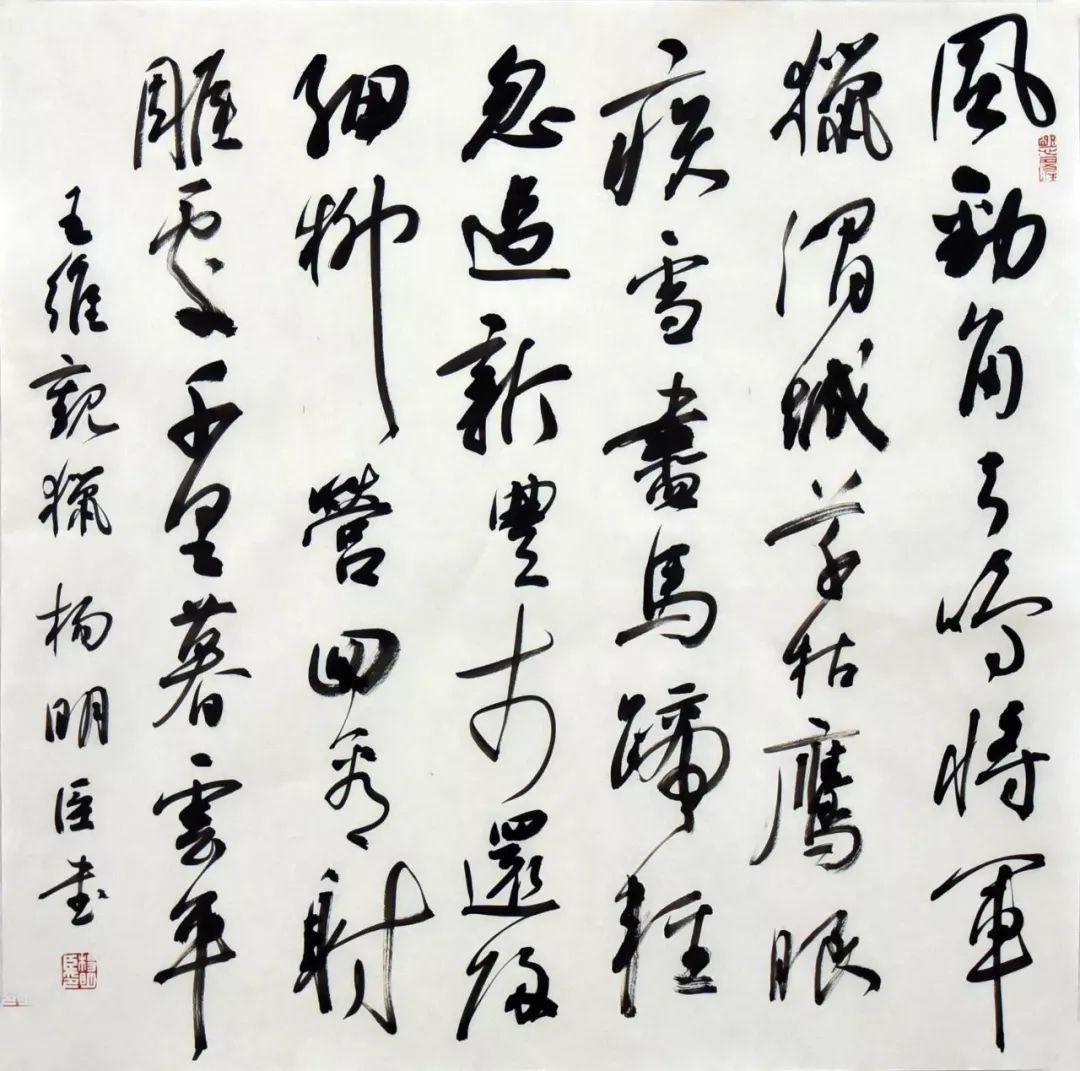 風勁角弓鳴將軍
獵渭城草枯鷹眼
疾雪盡馬蹄輕
忽過新豐市還歸
細柳營回看射
雕處千里暮雲平
王維觀獵 楊明臣書